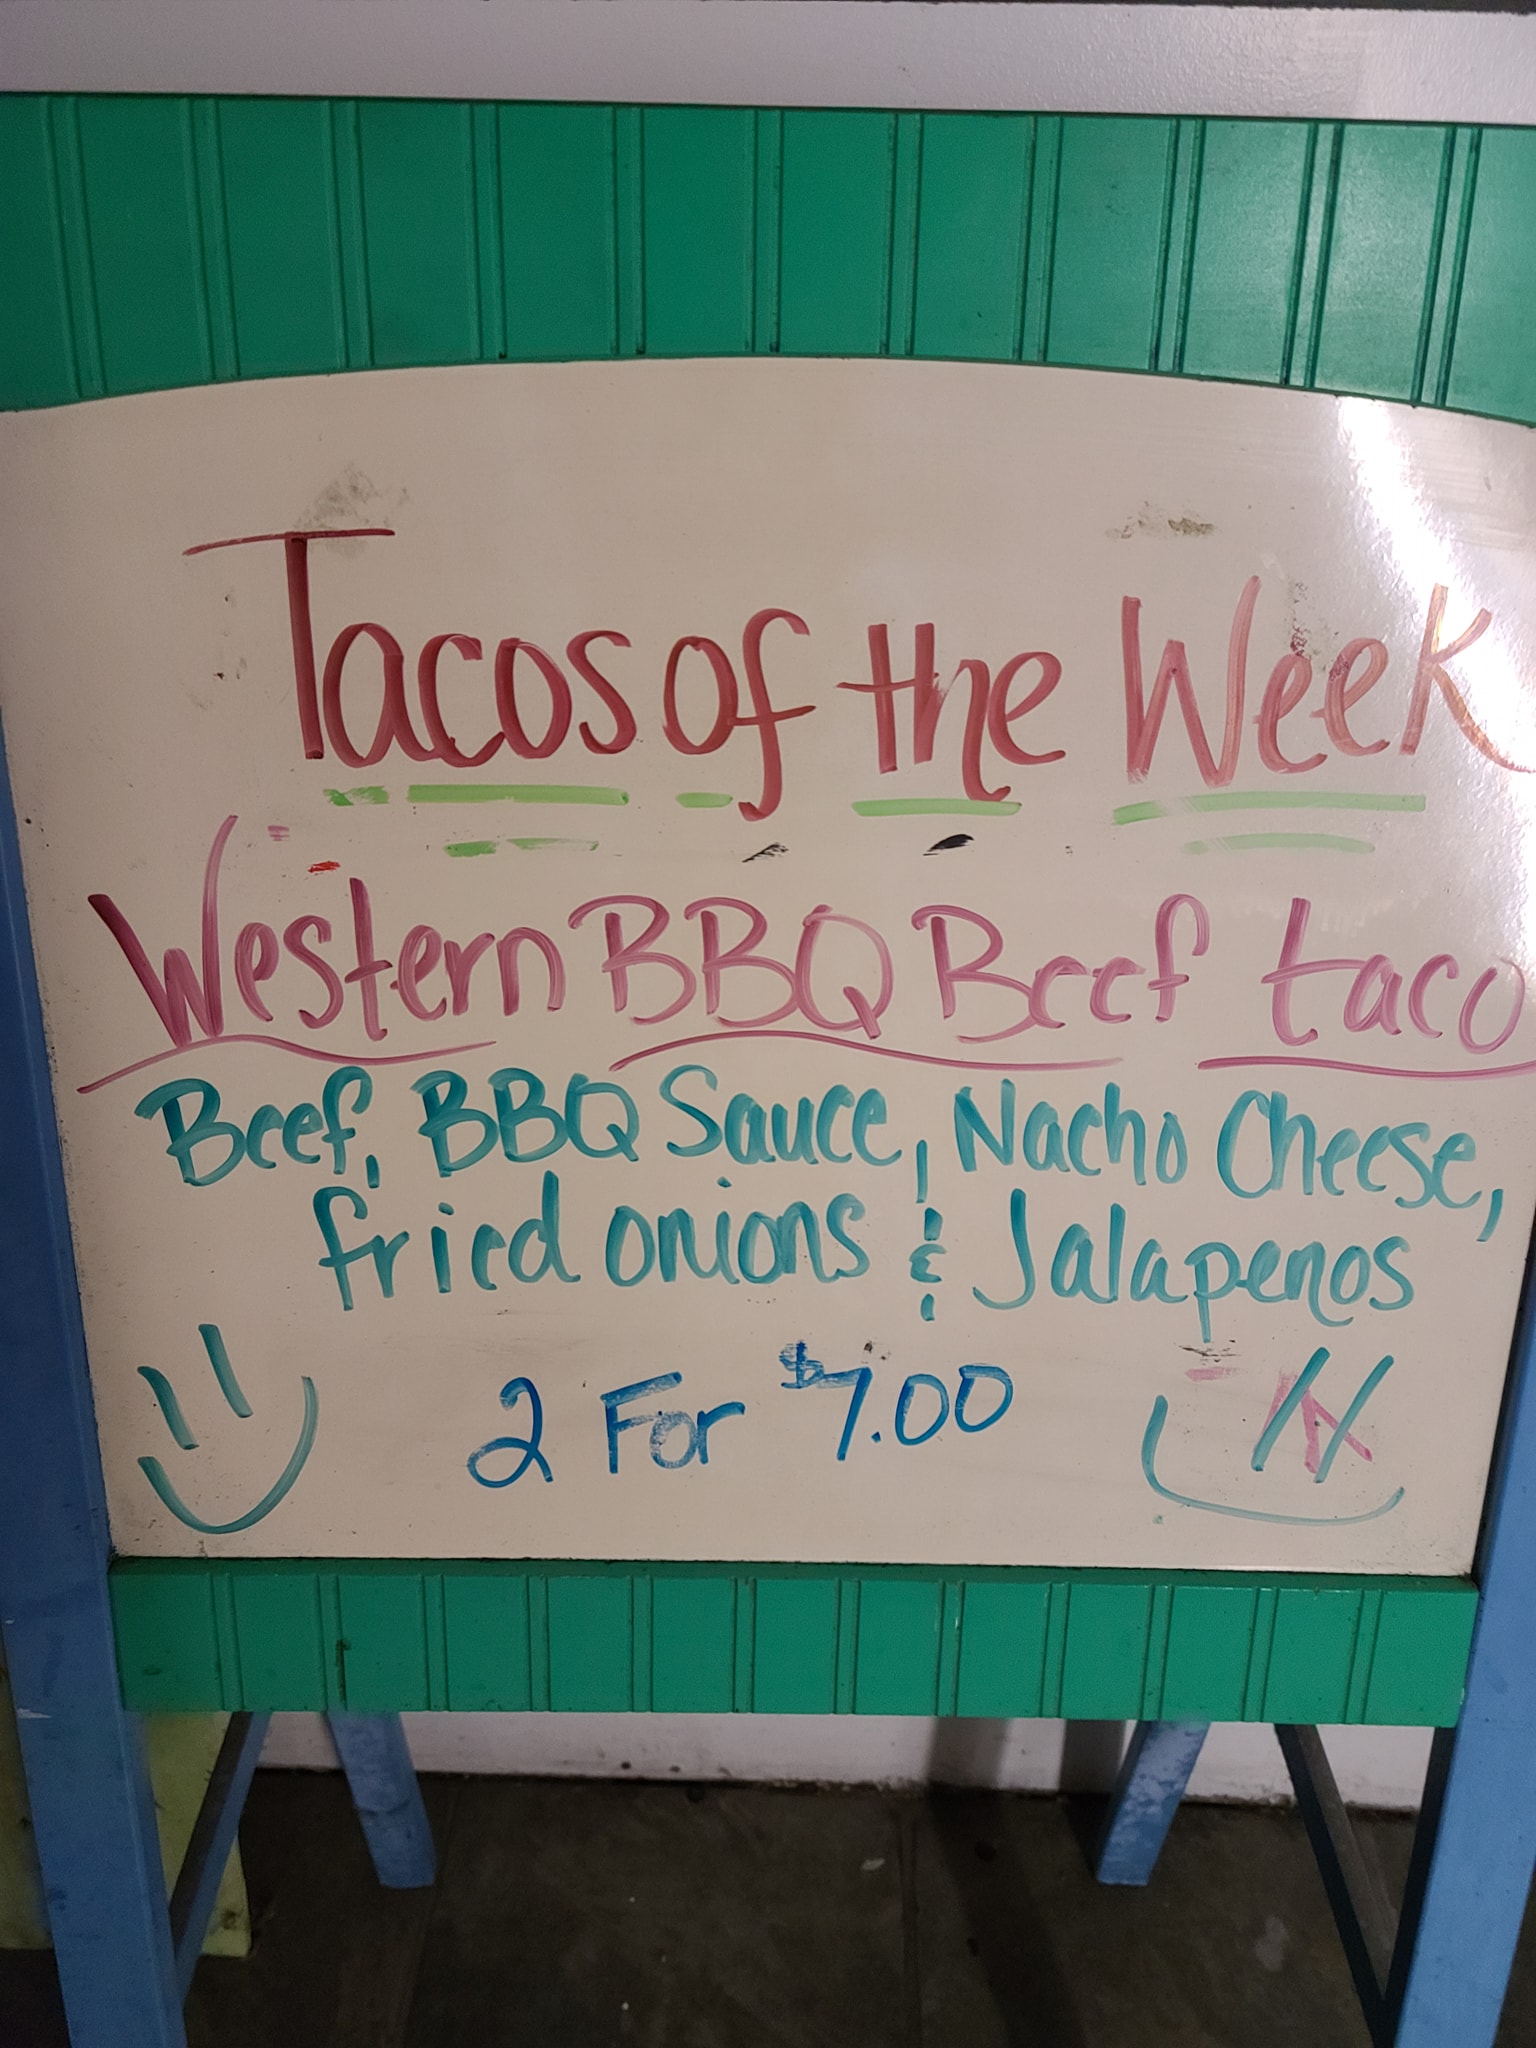 Tacos of the Week
Western BBQ Beef taco
Beef, BBQ Sauce, Nacho Cheese,
fried onions & Jalapenos
2 For $7.00